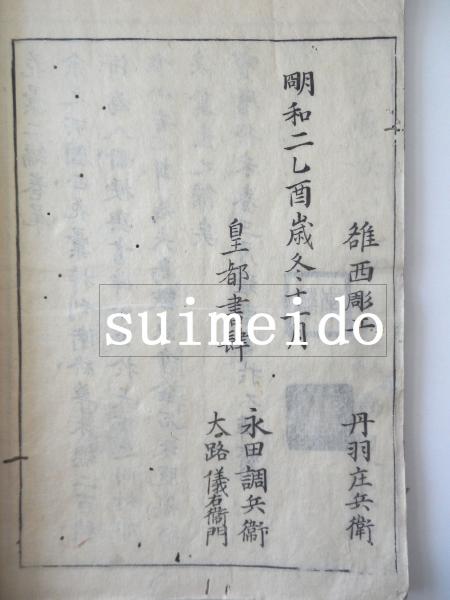 雒西彫工 丹羽庄兵衛
明和二乙酉歳冬十一月
皇都書肆 永田調兵衞
大路儀右衞門
suimeido